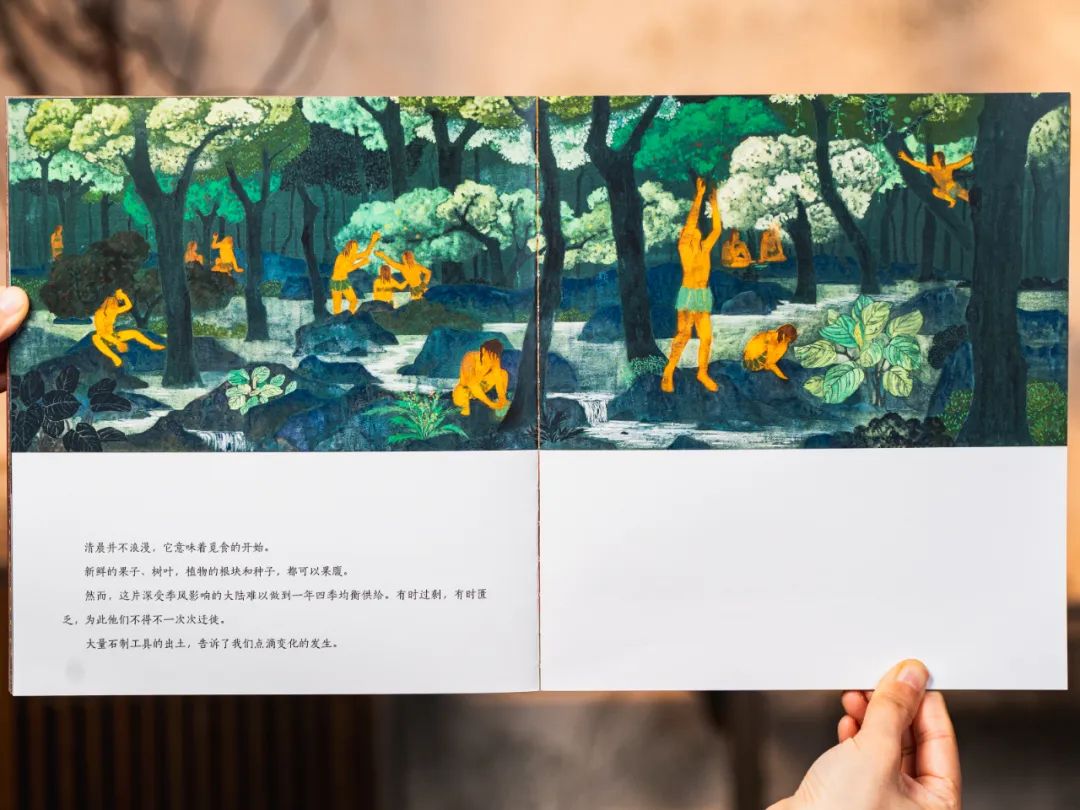 清晨并不浪漫，它意味着觅食的开始。
新鲜的果子、树叶，植物的根块和种子，都可以果腹。
然而，这片深受季风影响的大陆难以做到一年四季均衡供给。有时过剩，有时匮
乏，为此他们不得不一次次迁徙。
大量石制工具的出土，告诉了我们点滴变化的发生。